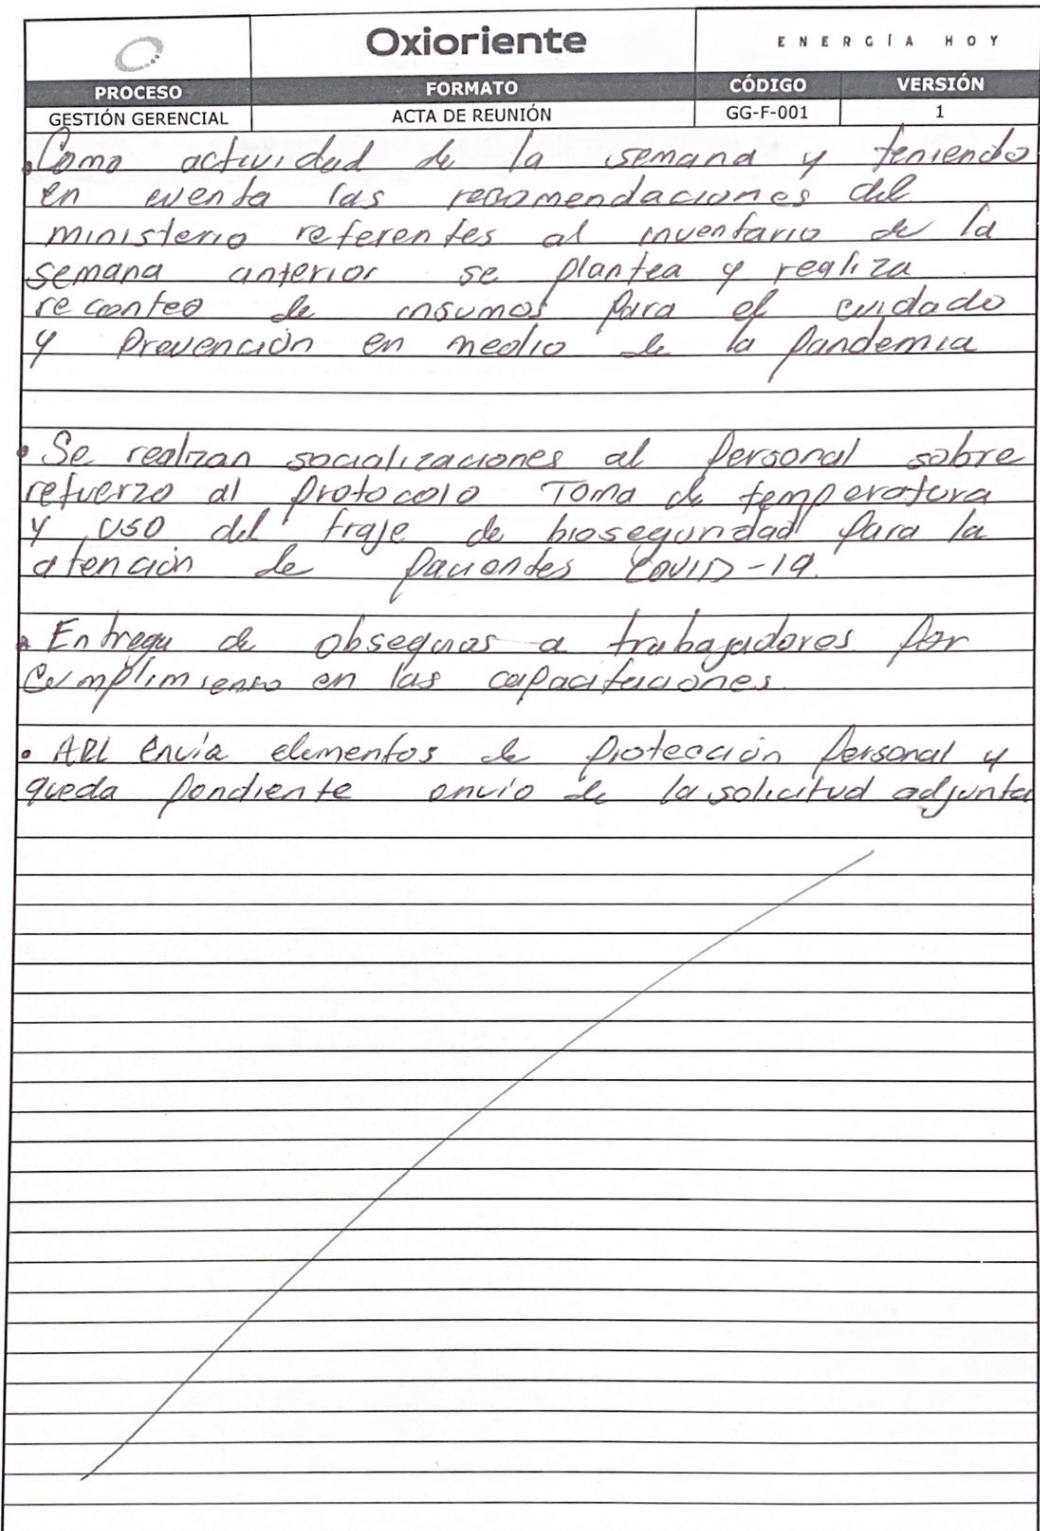 Oxioriente
ENERGÍA HOY
PROCESO FORMATO CÓDIGO VERSIÓN
GESTIÓN GERENCIAL ACTA DE REUNIÓN GG-F-001 1
• Como actividad de la semana y teniendo
en cuenta las recomendaciones del
ministerio referentes al inventario de la
semana anterior se plantea y realiza
reconteo de insumos para el cuidado
y Prevención en medio de la pandemia
• Se realizan socializaciones al personal sobre
refuerzo al protocolo Toma de temperatura
y uso del traje de bioseguridad para la
atención de pacientes COVID-19.
• Entrega de obsequios a trabajadores por
cumplimiento en las capacitaciones.
• ARL envía elementos de protección personal y
queda pendiente envío de la solicitud adjunta